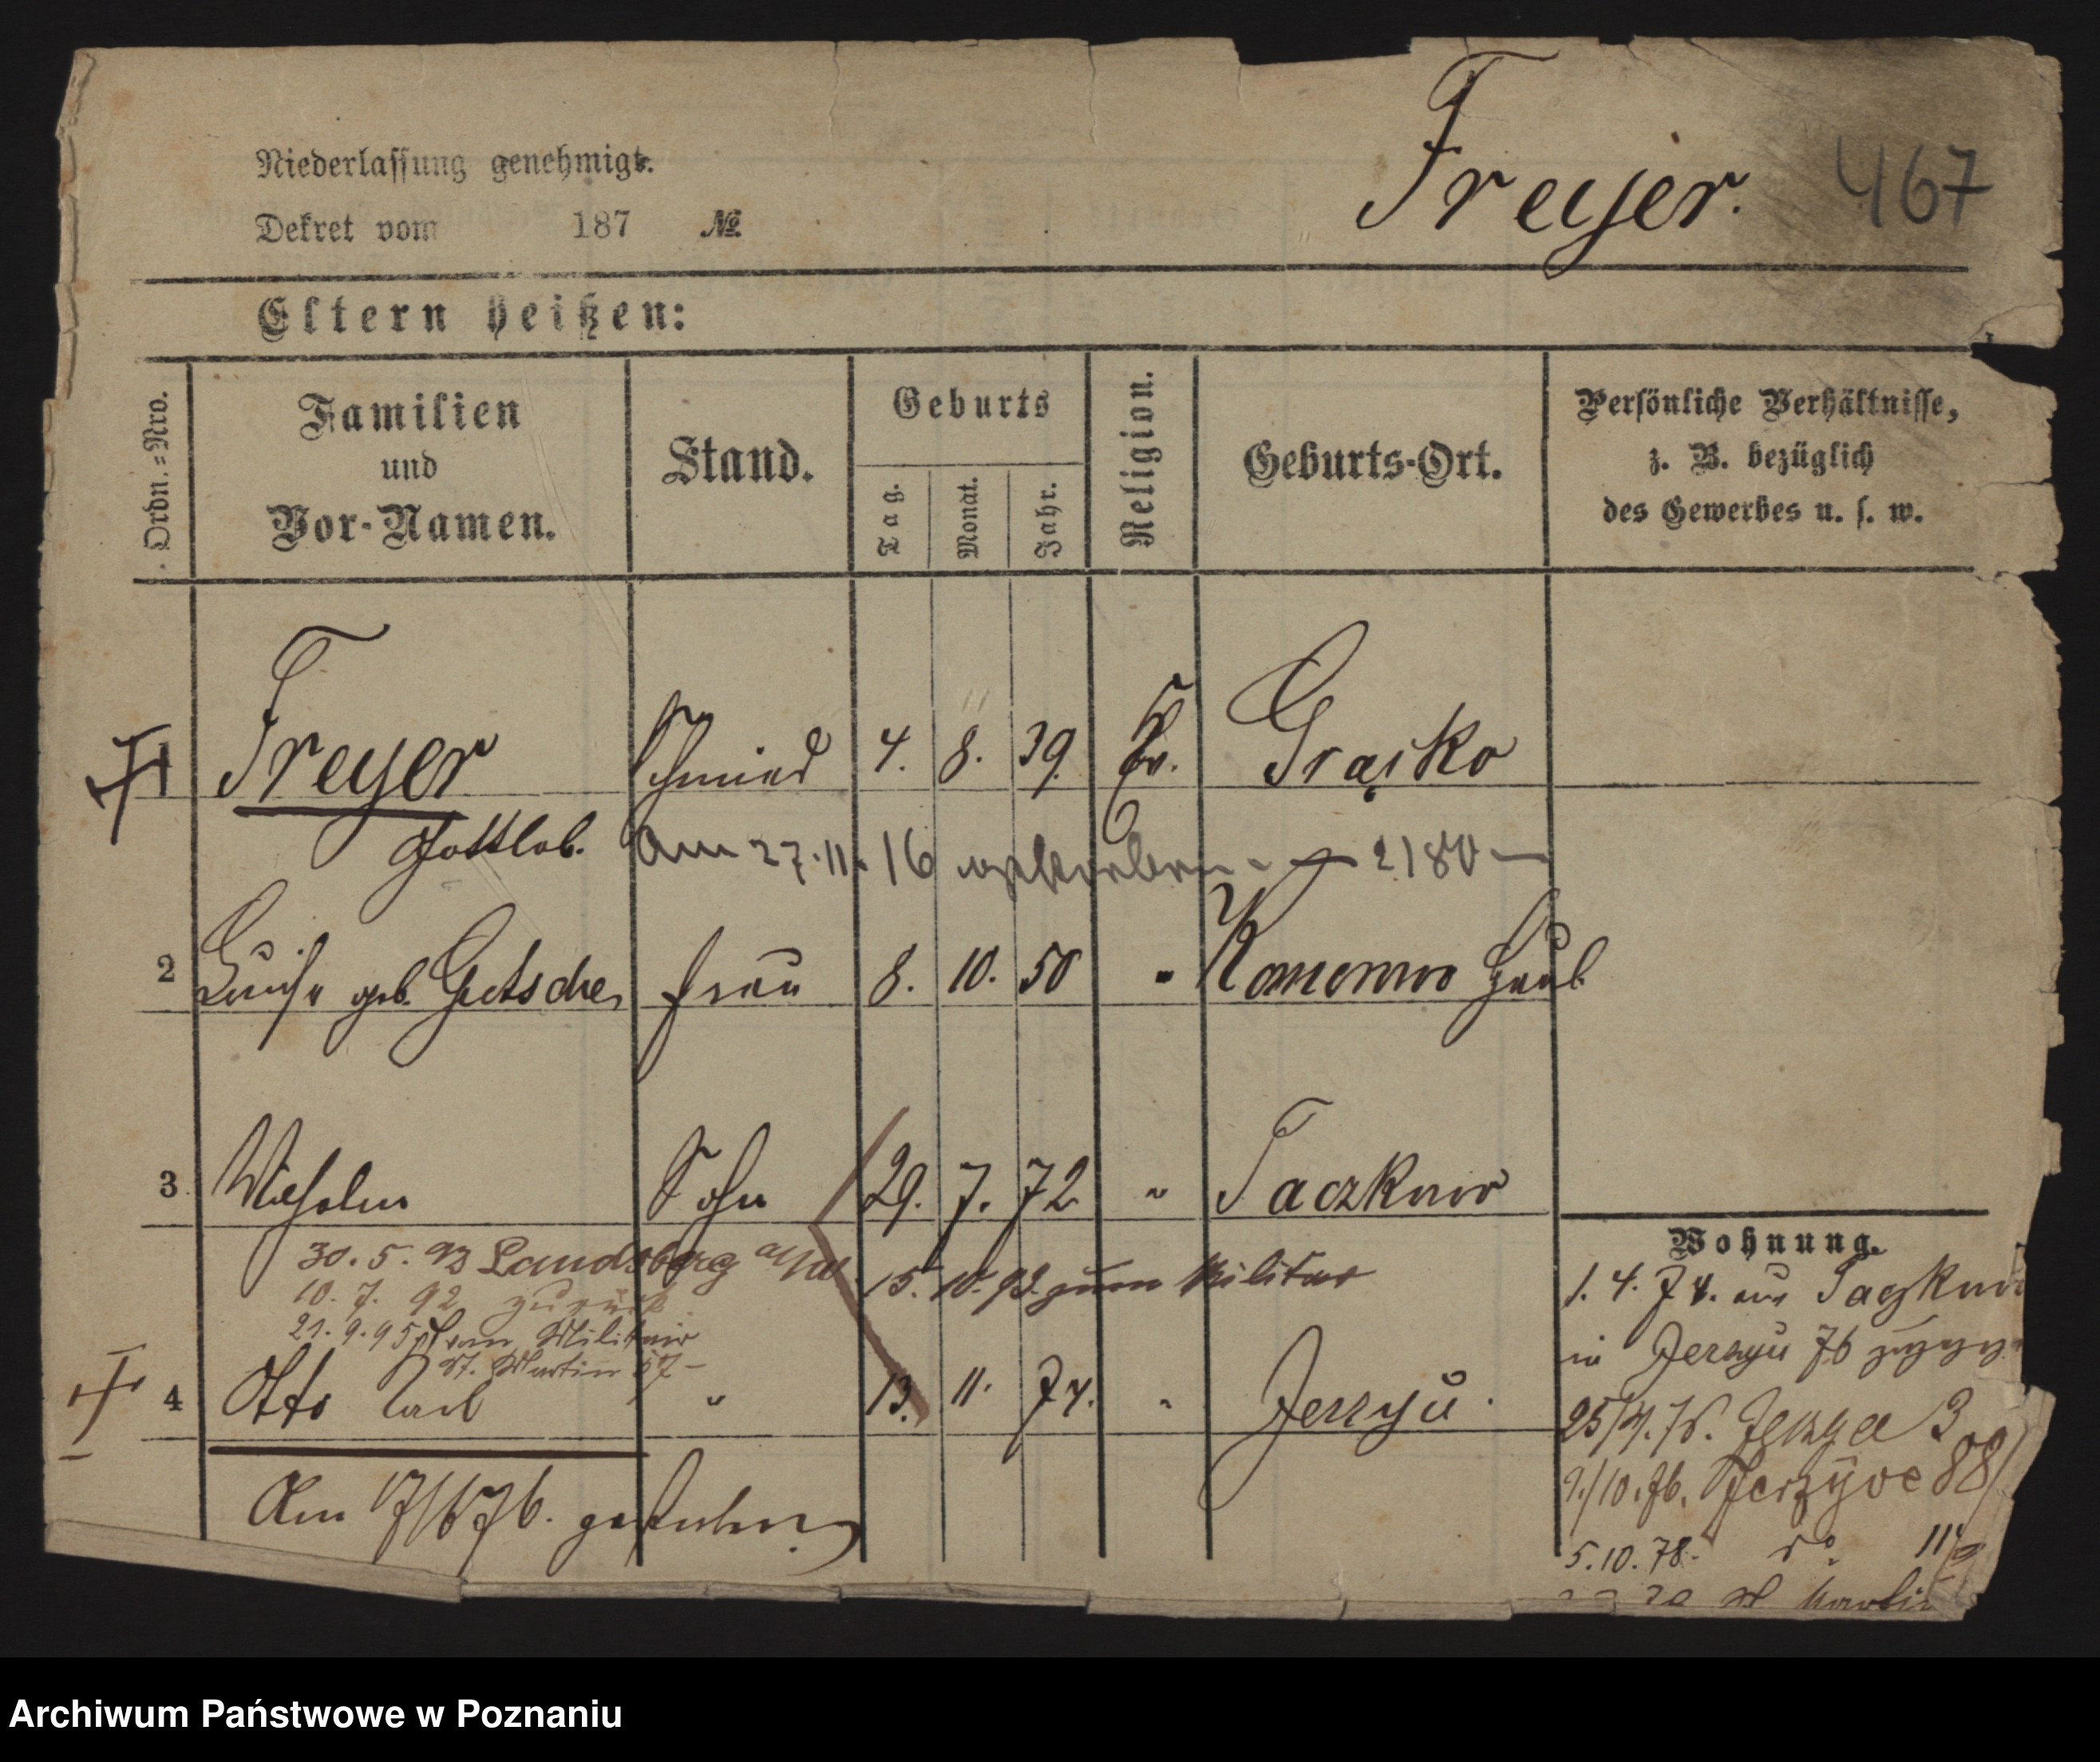 Freyer. 467
Niederlassung genehmigt.
Dekret vom 187 №
Eltern heißen:
Ordn.=Nro.
Familien
und
Vor-Namen.
Stand.
Geburts
Tag.
Monat.
Jahr.
Religion.
Geburts-Ort.
Persönliche Verhältnisse,
z. B. bezüglich
des Gewerbes u. s. w.
1 Freyer Schmied 4. 8. 39. Ev.
Gottlob. Am 27.11.16 gestorben 2180
2 Luise geb. Frau 8. 10. 50 "
3 Wilhelm Sohn 29. 7. 72 " Taczkowo
30.5.93 Landsberg a/W 15.10.92. zum Militär
10.7.92 zurück
21.9.95 vom Militair
St. Martin 57 –
4 Otto Carl " 13. 11. 74. " Jerzyce.
Am 17/6 76. gestorben.
Wohnung.
1.4.74. aus
in Jerzyce 76
Jerzyce 3
9/10.76. Jerzyce 88
5.10.78. do. 11
St Martin
Archiwum Państwowe w Poznaniu